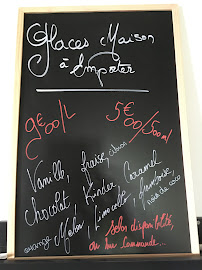 Glaces Maison
à Emporter
9€00/L
5€00/500ml
Vanille, fraise, citron
chocolat, Kinder, Caramel
orange, Melon, Limoncello, framboise,
noix de coco
selon disponibilité,
ou sur Commande...